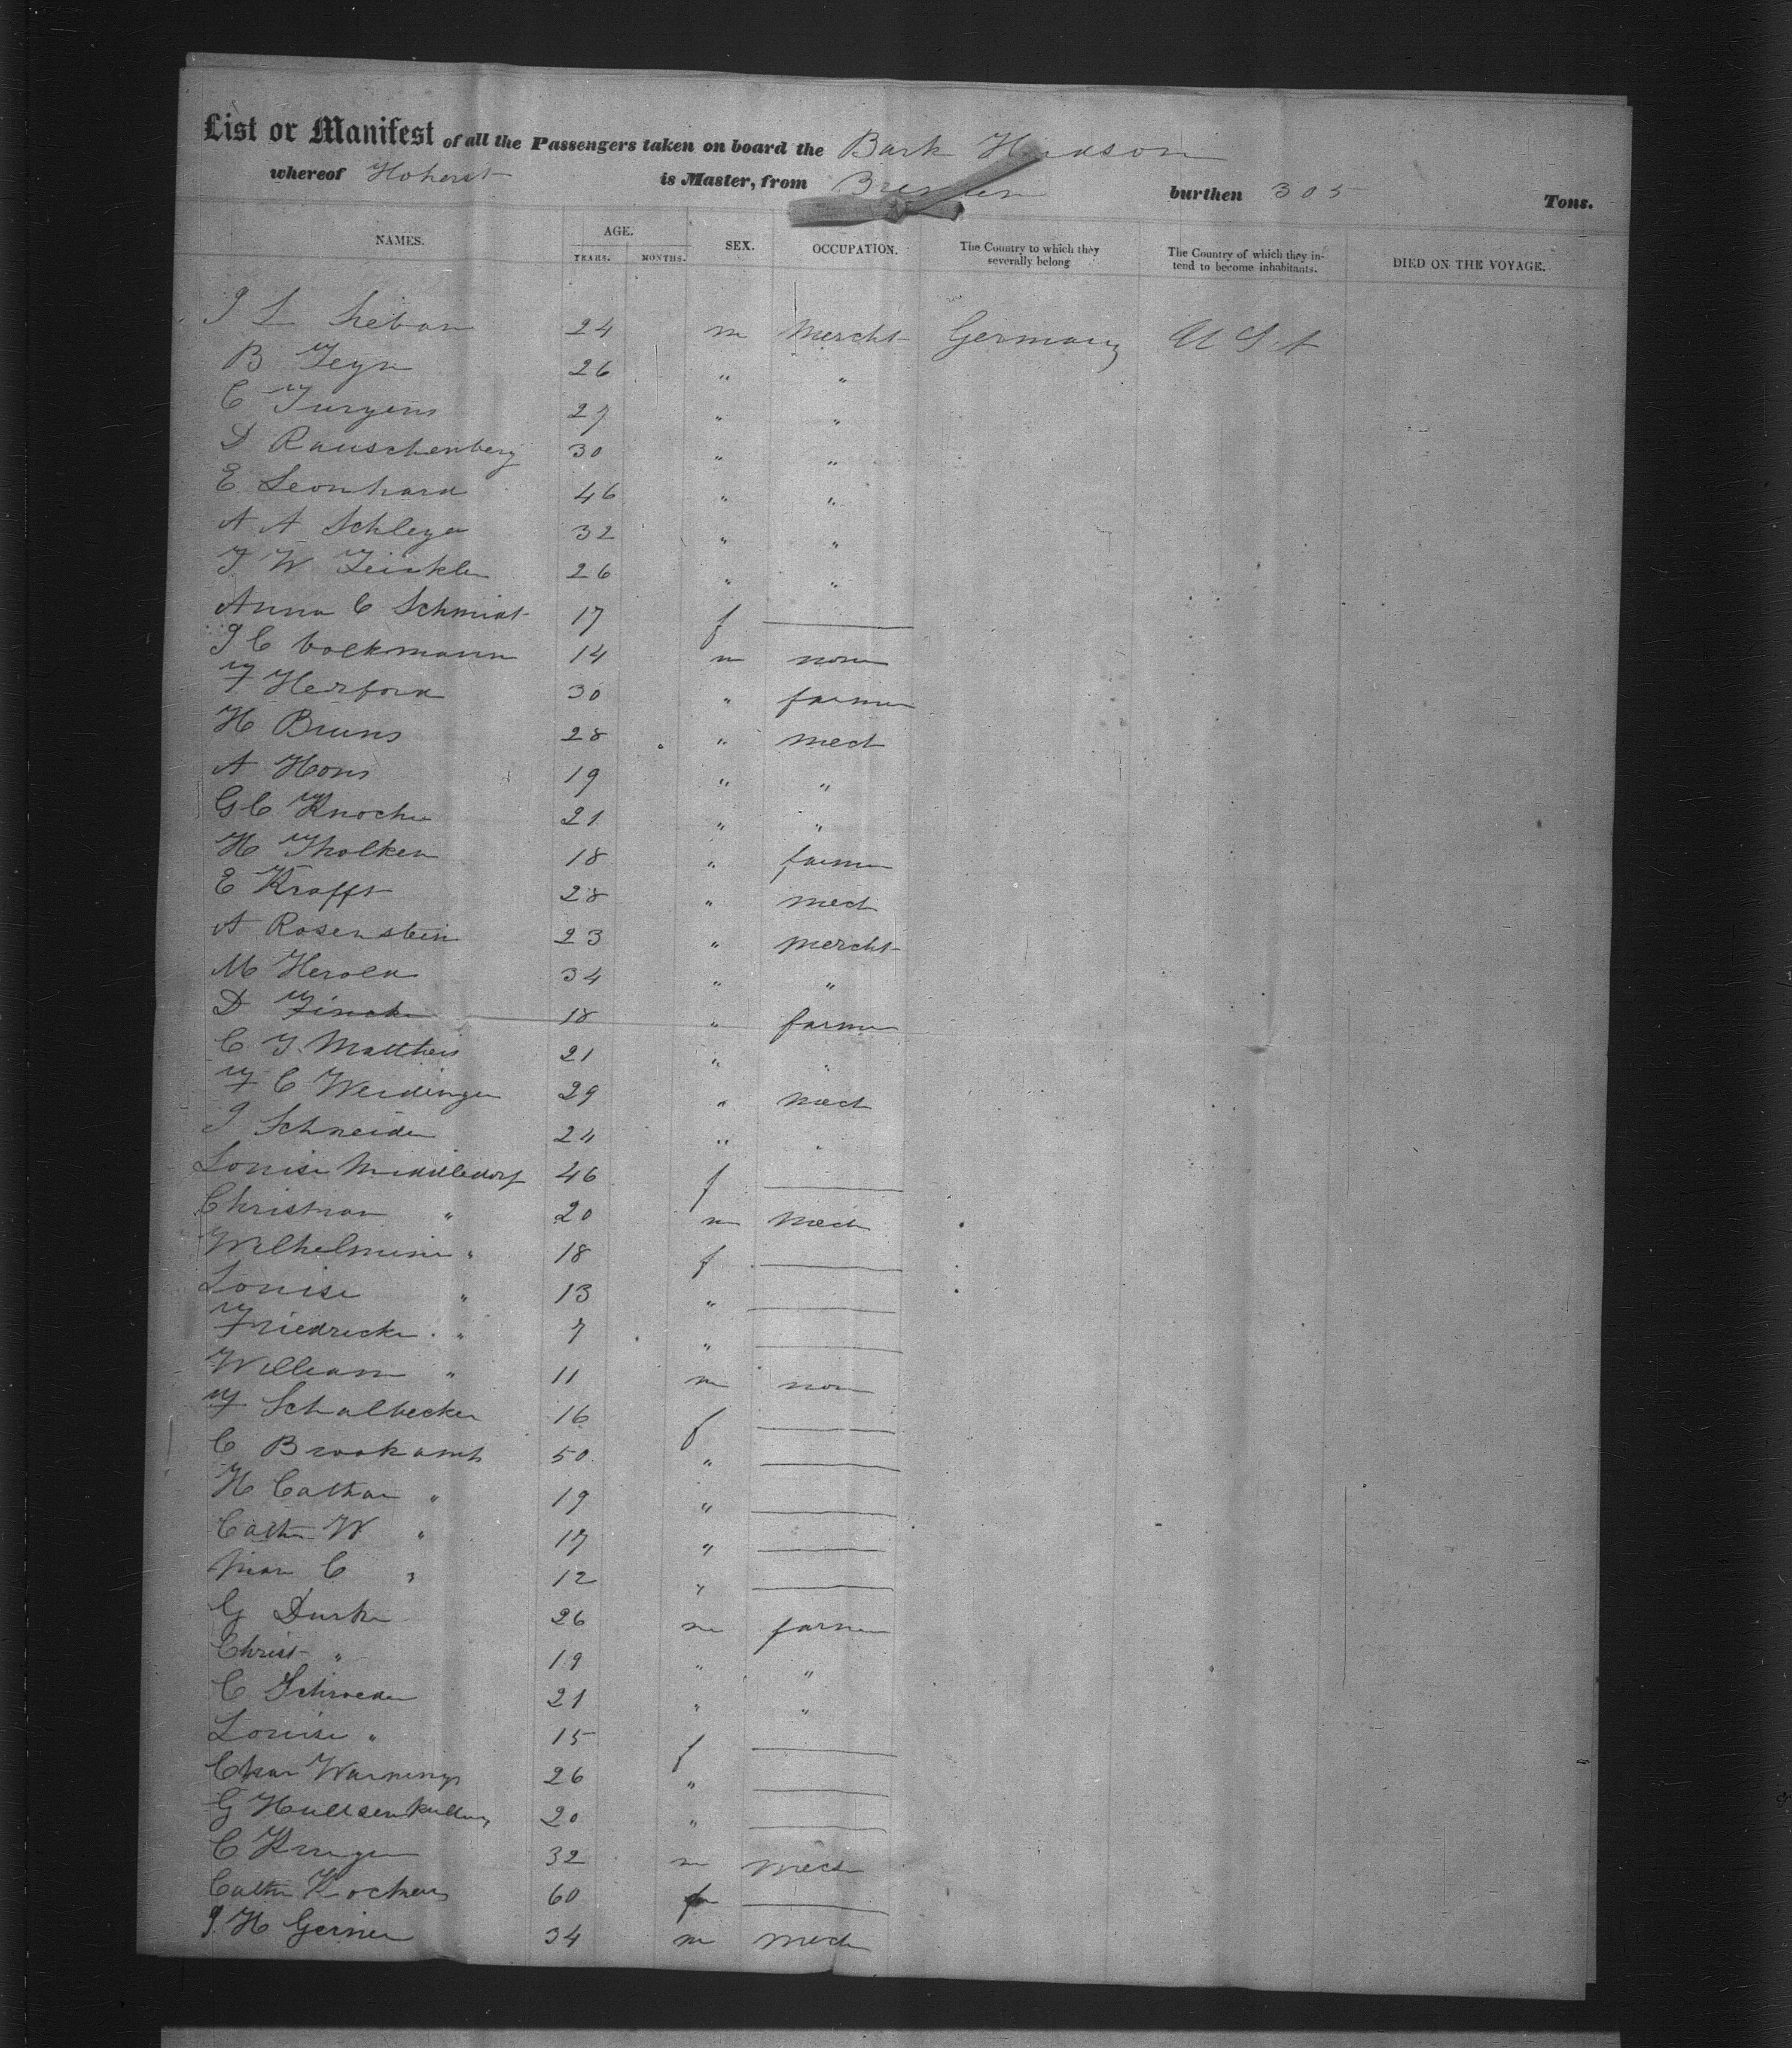 List or Manifest of all the Passengers taken on board the Bark Hudson
whereof Hoherst is Master, from Bremen burthen 305 Tons.
NAMES. AGE. YEARS. MONTHS. SEX. OCCUPATION. The Country to which they severally belong The Country of which they intend to become inhabitants. DIED ON THE VOYAGE.
J L 24 m Mercht Germany U S A
B 26 " "
C Jurgens 27 " "
D Rauschenberg 30 " "
E Leonhard 46 " "
A A 32 " "
J W 26 " "
Anna C Schmidt 17 f
J C Volkmann 14 m none
F Herford 30 " farmer
H Bruns 28 " mech
A Hons 19 " "
G C Knoche 21 " "
H Tholken 18 " farmer
E Krafft 28 " mech
A Rosenstein 23 " mercht
M Herold 34 " "
D Fincke 18 " farmer
C J Mattheis 21 " "
F C Weidinger 29 " mech
J Schneider 24 " "
Louise Middledorf 46 f
Christian " 20 m mech
Wilhelmine " 18 f
Louise " 13 "
Friedricke " 7 "
William " 11 m non
F Schalbecker 16 f
C Brookamp 50 "
H Cathar " 19 "
Cath W " 17 "
Mar C " 12 "
G Durke 26 m farmer
Christ " 19 " "
C Schroeder 21 " "
Louise " 15 f
Char Warnings 26 "
G 20 "
C Kruger 32 m mech
Cath 60 f
J H Gerner 34 m mech